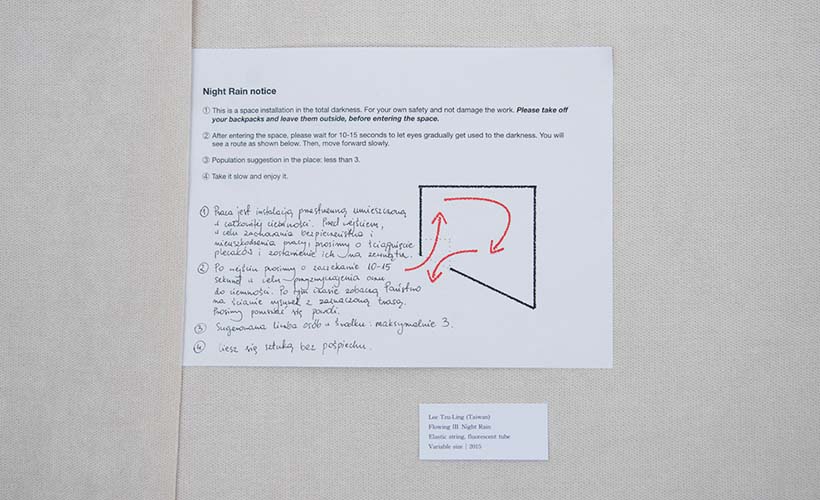 Night Rain notice
① This is a space installation in the total darkness. For your own safety and not damage the work. Please take off
your backpacks and leave them outside, before entering the space.
② After entering the space, please wait for 10-15 seconds to let eyes gradually get used to the darkness. You will
see a route as shown below. Then, move forward slowly.
③ Population suggestion in the place: less than 3.
④ Take it slow and enjoy it.
① Praca jest instalacją przestrzenną umieszczoną
w całkowitej ciemności. Przed wejściem,
w celu zachowania bezpieczeństwa i
nieuszkodzenia pracy, prosimy o ściągnięcie
plecaków i zostawienie ich na zewnątrz.
② Po wejściu prosimy o zaczekanie 10-15
sekund w celu przyzwyczajenia oczu
do ciemności. Po tym czasie zobaczą Państwo
na ścianie rysunek z zaznaczoną trasą.
Prosimy poruszać się powoli.
③ Sugerowana liczba osób w środku: maksymalnie 3.
④ Ciesz się sztuką bez pośpiechu.
Lee Tzu-Ling (Taiwan)
Flowing III. Night Rain
Elastic string, fluorescent tube
Variable size | 2015